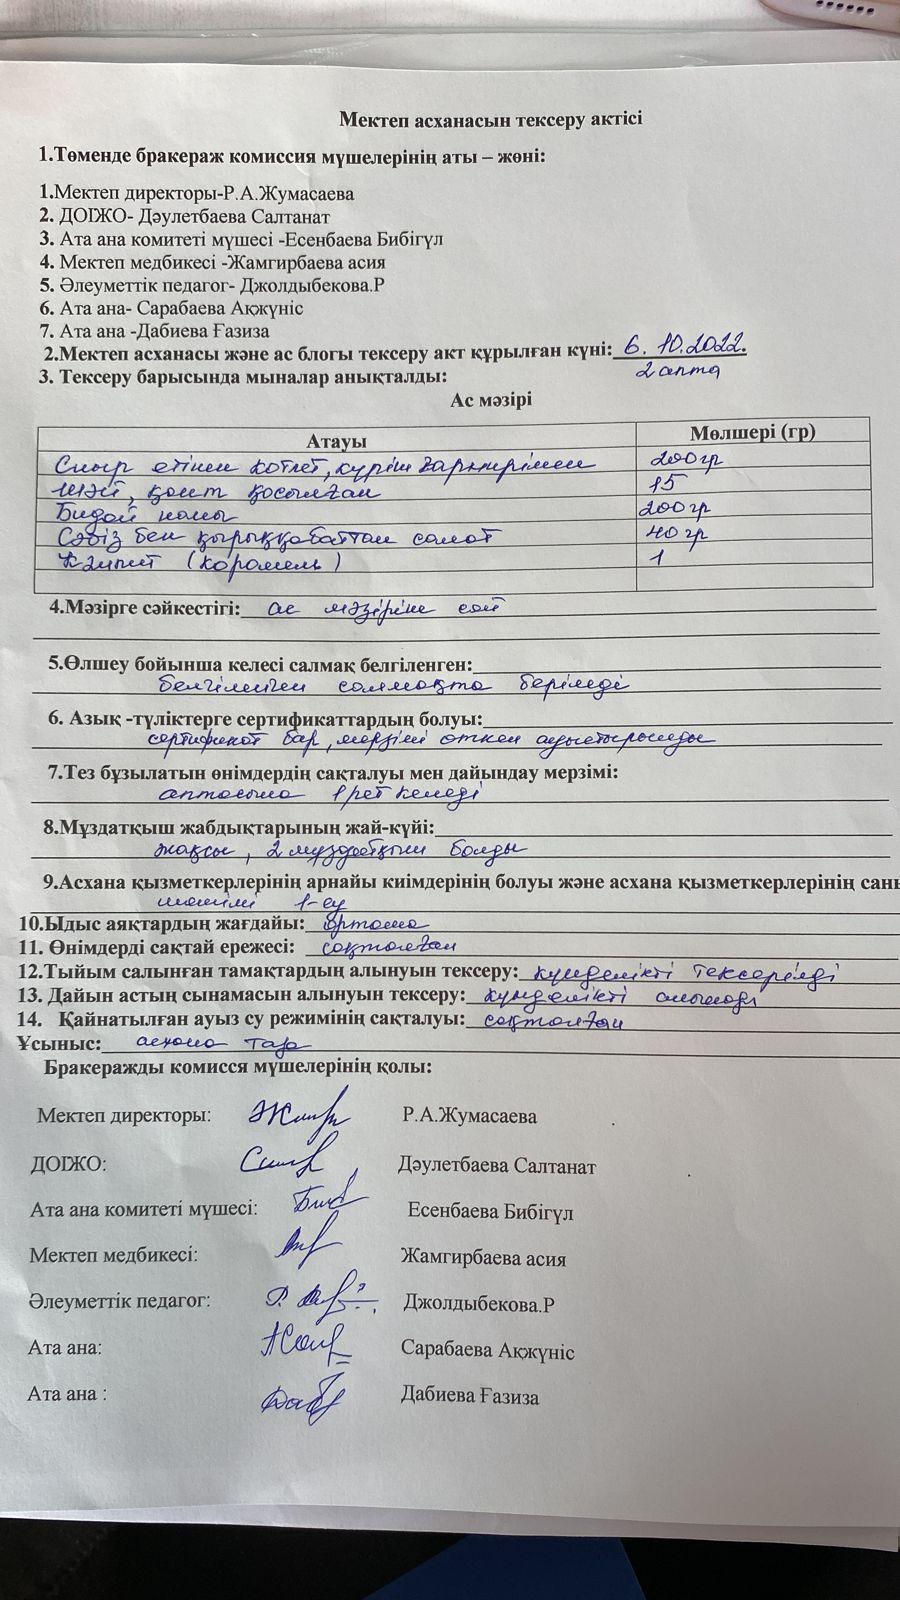 Мектеп асханасын тексеру актісі
1.Төменде бракераж комиссия мүшелерінің аты – жөні:
1.Мектеп директоры-Р.А.Жумасаева
2. ДОІЖО- Дәулетбаева Салтанат
3. Ата ана комитеті мүшесі -Есенбаева Бибігүл
4. Мектеп медбикесі -Жамгирбаева асия
5. Әлеуметтік педагог- Джолдыбекова.Р
6. Ата ана- Сарабаева Ақжүніс
7. Ата ана -Дабиева Ғазиза
2.Мектеп асханасы және ас блогы тексеру акт құрылған күні: 6. 10.2022.
2 апта
3. Тексеру барысында мыналар анықталды:
Ас мәзірі
Атауы Мөлшері (гр)
Сиыр етінен котлет, күріш гарнирімен 200гр
Шәй, қант қосылған 15
Бидай наны 200гр
Сәбіз бен қырыққабаттан салат 40 гр
Кәмпит (карамель) 1
4.Мәзірге сәйкестігі: ас мәзіріне сай
5.Өлшеу бойынша келесі салмақ белгіленген:
белгіленген салмақта беріледі
6. Азық -түліктерге сертификаттардың болуы:
сертификат бар, мерзімі өткен ауыстырылады
7.Тез бұзылатын өнімдердің сақталуы мен дайындау мерзімі:
аптасына 1 рет келеді
8.Мұздатқыш жабдықтарының жай-күйі:
жақсы, 2 мұздатқыш болды
9.Асхана қызметкерлерінің арнайы киімдерінің болуы және асхана қызметкерлерінің саны
1-еу
10.Ыдыс аяқтардың жағдайы: орташа
11. Өнімдерді сақтай ережесі: сақталған
12.Тыйым салынған тамақтардың алынуын тексеру: күнделікті тексеріледі
13. Дайын астың сынамасын алынуын тексеру: күнделікті алынады
14. Қайнатылған ауыз су режимінің сақталуы: сақталған
Ұсыныс: асхана таза
Бракеражды комисся мүшелерінің қолы:
Мектеп директоры: Р.А.Жумасаева
ДОІЖО: Дәулетбаева Салтанат
Ата ана комитеті мүшесі: Есенбаева Бибігүл
Мектеп медбикесі: Жамгирбаева асия
Әлеуметтік педагог: Джолдыбекова.Р
Ата ана: Сарабаева Ақжүніс
Ата ана : Дабиева Ғазиза